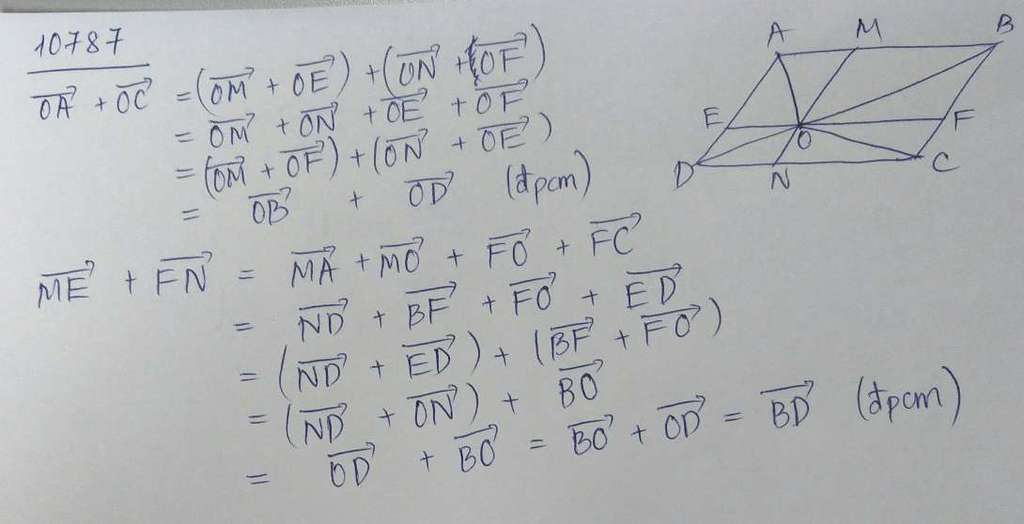 10787
OA + OC = (OM + OE) + (ON + OF)
= OM + ON + OE + OF
= (OM + OF) + (ON + OE)
= OB + OD (đpcm)
ME + FN = MA + MO + FO + FC
= ND + BF + FO + ED
= (ND + ED) + (BF + FO)
= (ND + ON) + BO
= OD + BO = BO + OD = BD (đpcm)
A M B
E O F
D N C